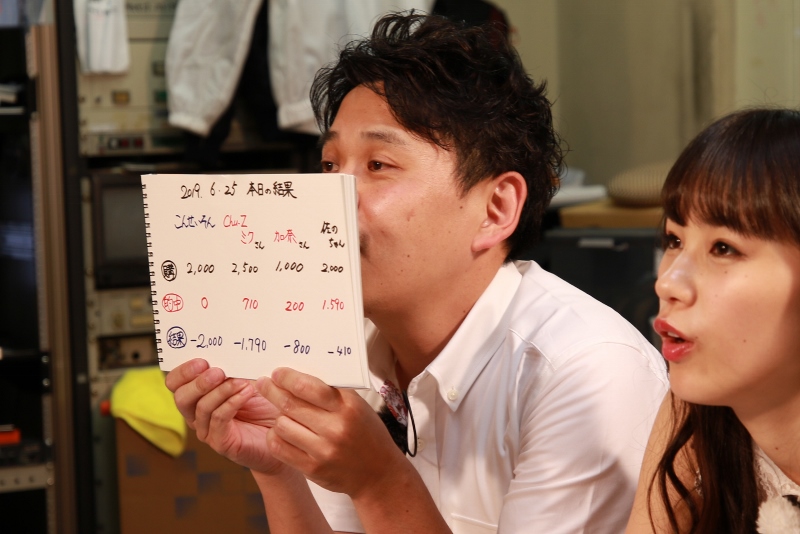 2019. 6. 25 本日の結果
こんせいそん Chu-Z ミクさん 加奈さん 佐のちゃん
購 2,000 2,500 1,000 2,000
的中 0 710 200 1.590
結果 -2,000 -1.790 -800 -410